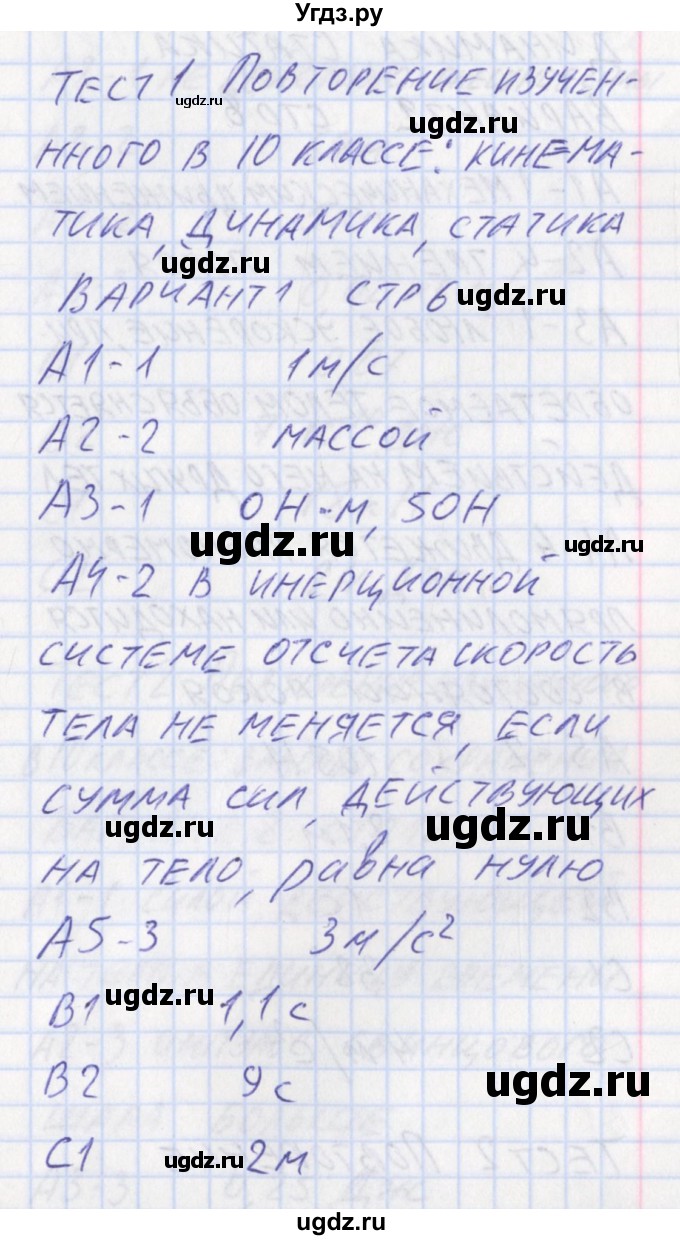 Угдз.ру
ТЕСТ 1 ПОВТОРЕНИЕ ИЗУЧЕН-
ugdz.ru
ugdz.ru
ННОГО В 10 КЛАССЕ: КИНЕМА-
ТИКА, ДИНАМИКА, СТАТИКА
ugdz.ru
ВАРИАНТ 1 СТР 6
ugdz.ru
А1-1 1 м/с
А2-2 МАССОЙ
А3-1 0 Н·м, 50Н
ugdz.ru
ugdz.ru
А4-2 В ИНЕРЦИОННОЙ
СИСТЕМЕ ОТСЧЕТА СКОРОСТЬ
ТЕЛА НЕ МЕНЯЕТСЯ, ЕСЛИ
СУММА СИЛ, ДЕЙСТВУЮЩИХ
ugdz.ru
ugdz.ru
НА ТЕЛО, равна НУЛЮ
А5-3 3 м/с²
ugdz.ru
В1 1,1 с
В2 9 с
ugdz.ru
С1 2 м
ugdz.ru
ugdz.ru